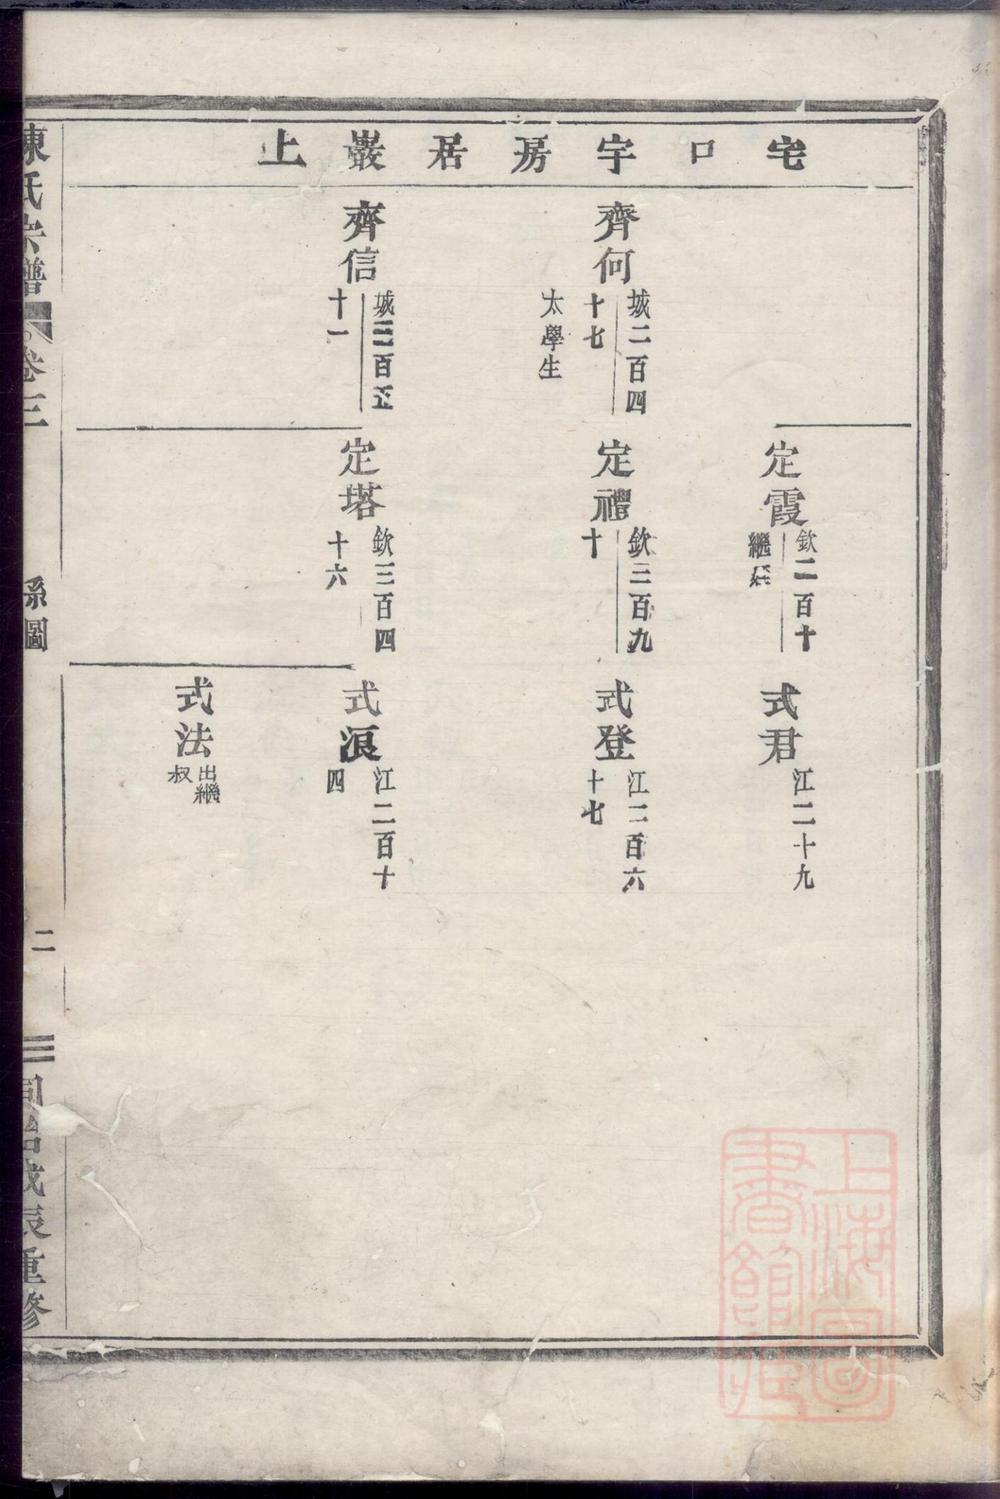 宅口宇房居巖上
齊何
城二百四
十七
太學生
齊信
城三百五
十一
定霞
欽二百十
繼廷
定禮
欽三百九
十
定塔
欽三百四
十六
式君
江二十九
式登
江二百六
十七
式浪
江二百十
四
式法
出繼
叔
陳氏宗譜
卷三
系圖
二
同治戊辰重修
上海圖
書館藏